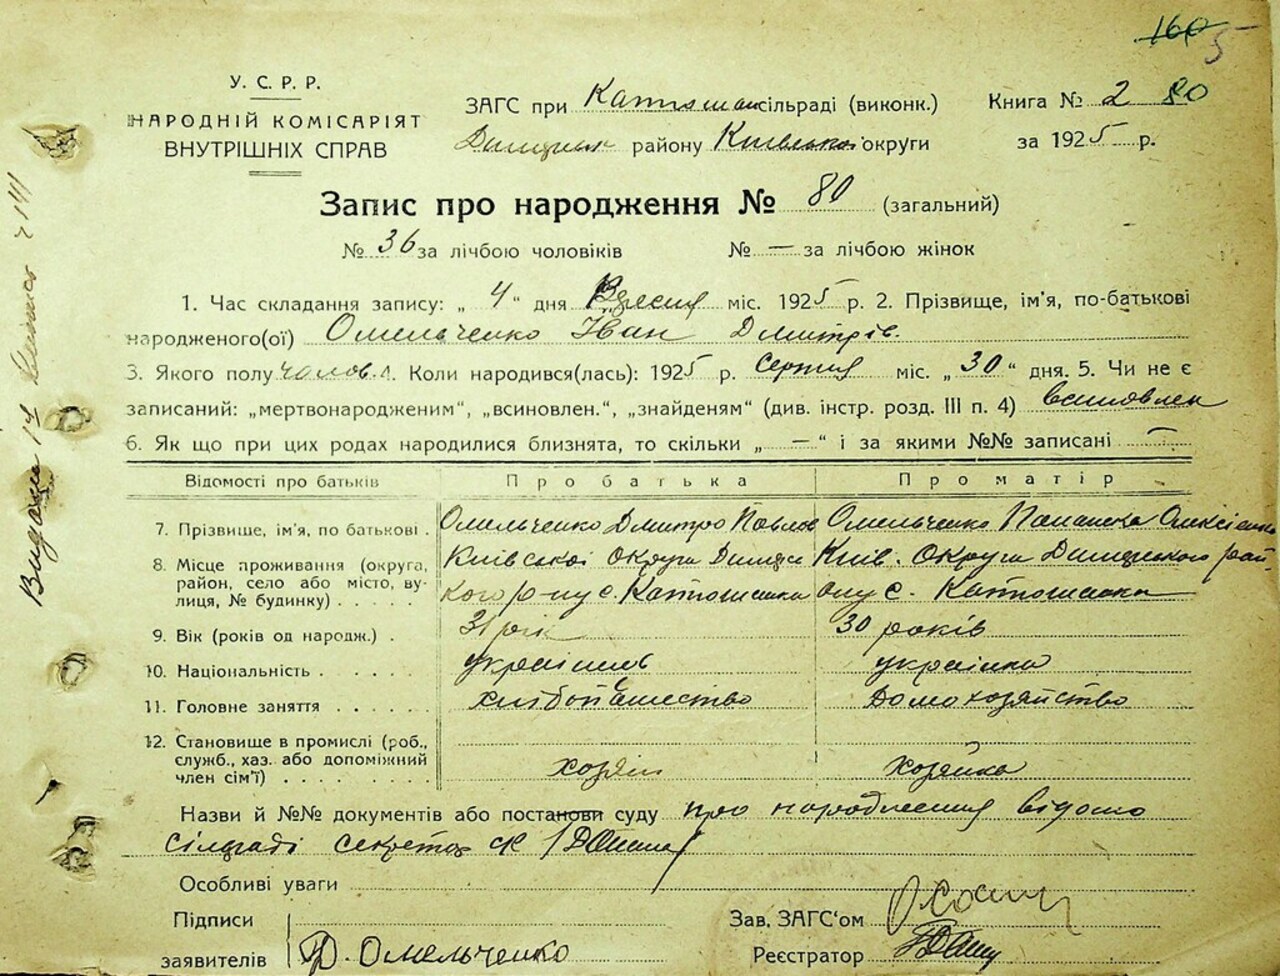 160 5
У. С. Р. Р.
НАРОДНІЙ КОМІСАРІЯТ
ВНУТРІШНІХ СПРАВ
ЗАГС при сільраді (виконк.)
району Київської округи
Книга № 2 80
за 1925 р.
Запис про народження № 80 (загальний)
№ 36 за лічбою чоловіків № — за лічбою жінок
1. Час складання запису: „ 4 “ дня Вересня міс. 1925 р. 2. Прізвище, ім'я, по-батькові
народженого(ої) Омельченко Іван Дмитрів.
3. Якого полу чолов. 4. Коли народився(лась): 1925 р. Серпня міс. „ 30 “ дня. 5. Чи не є
записаний: „мертвонародженим“, „всиновлен.“, „знайденям“ (див. інстр. розд. III п. 4) всиновлен
6. Як що при цих родах народилися близнята, то скільки „ — “ і за якими №№ записані —
Відомості про батьків Про батька Про матір
7. Прізвище, ім'я, по батькові . Омельченко Дмитро Павлов Омельченко Олексіевна
8. Місце проживання (округа, Київської округи Київ. Округа рай-
район, село або місто, ву- кого р-ну с. ону с.
лиця, № будинку) . . . . .
9. Вік (років од народж.) . 31 рік 30 років
10. Національність . . . . . українець українка
11. Головне заняття . . . . . хлібопашество Домохозяйство
12. Становище в промислі (роб.,
служб., хаз. або допоміжний
член сім'ї) . . . . . . . хозяін хозяйка
Назви й №№ документів або постанови суду про народження відомо
сілраді секретар
Особливі уваги
Підписи Зав. ЗАГС'ом
заявителів Д. Омельченко Реєстратор